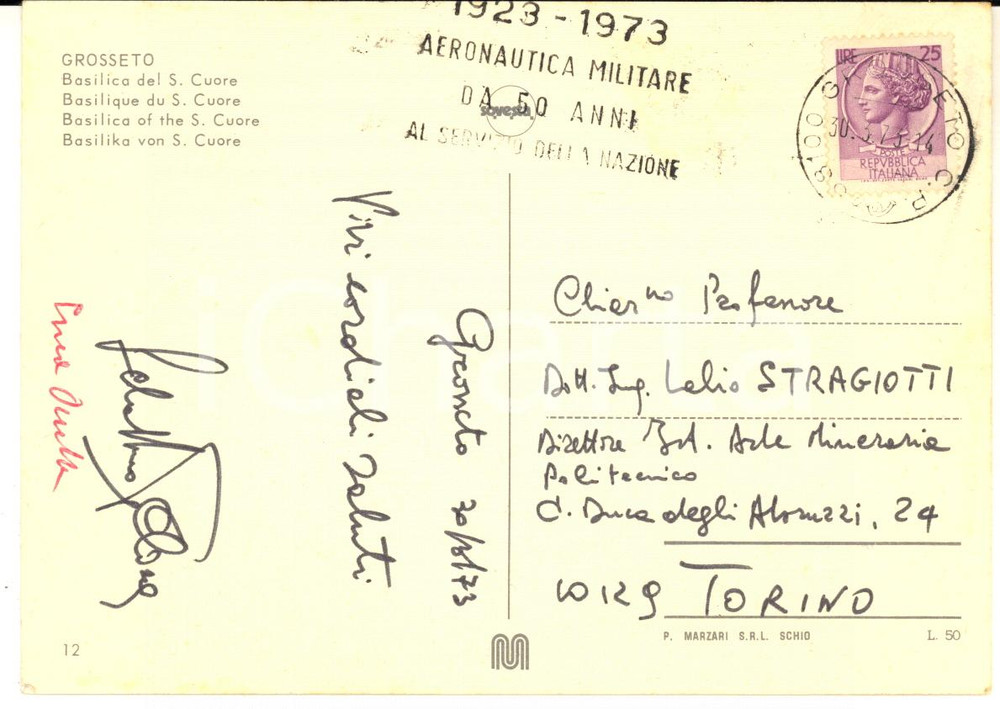 GROSSETO
Basilica del S. Cuore
Basilique du S. Cuore
Basilica of the S. Cuore
Basilika von S. Cuore
1923 - 1973
AERONAUTICA MILITARE
DA 50 ANNI
AL SERVIZIO DELLA NAZIONE
sovesta
LIRE 25
POSTE
REPVBBLICA
ITALIANA
58100 GROSSETO C.P.
30.3.73-14
Grosseto 30/3/73
Vivi cordiali saluti
Chiar.mo Professore
Dott. Ing. Lelio STRAGIOTTI
Direttore Ist. Arte Mineraria
Politecnico
C. Duca degli Abruzzi, 24
10129 TORINO
P. MARZARI S.R.L. SCHIO
L. 50
12
iCharta